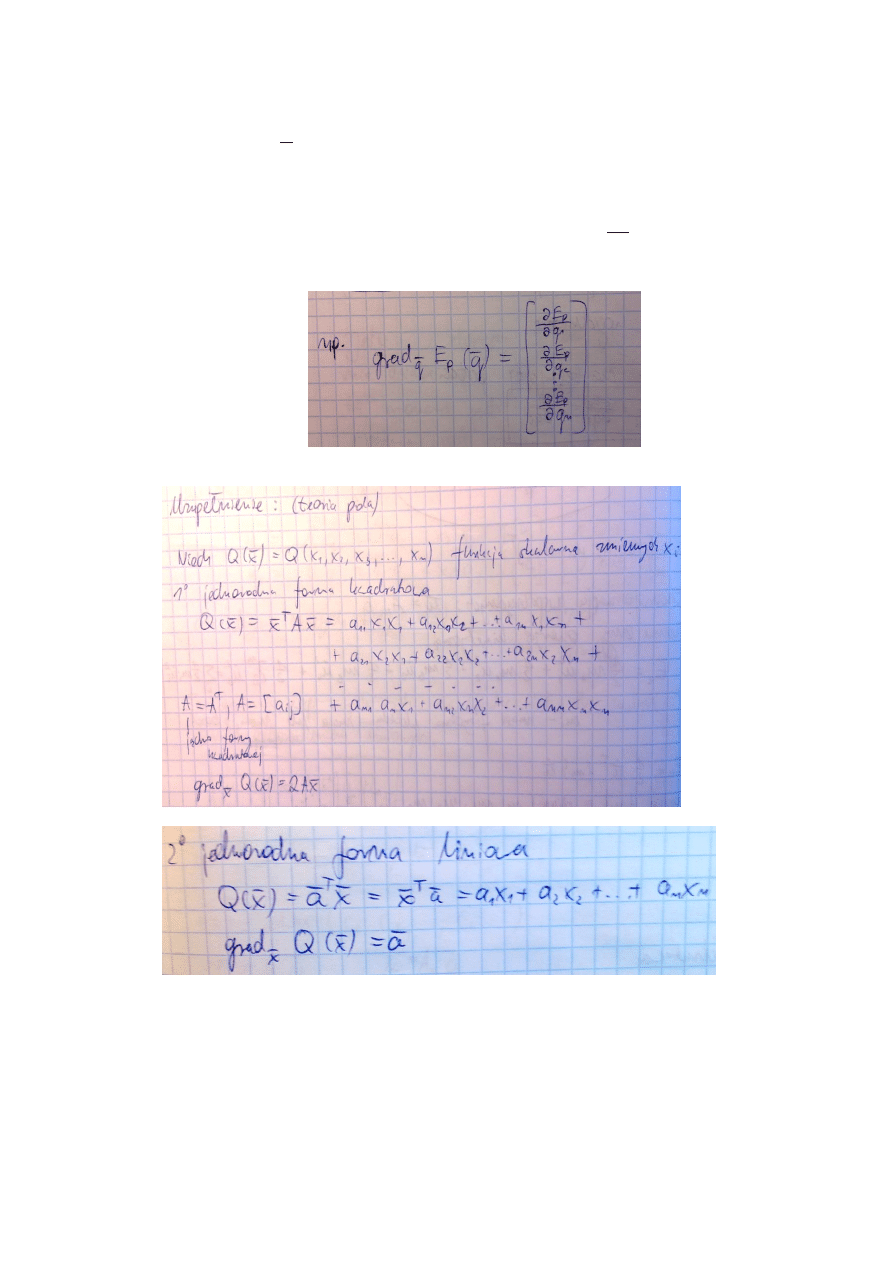 np. grad_q̄ E_p (q̄) = [ ∂E_p/∂q₁ ∂E_p/∂q₂ ⋮ ∂E_p/∂qₙ ]
Uzupełnienie : (teoria pola)
Niech Q(x̄) = Q(x₁, x₂, x₃, ..., xₙ) funkcja skalarna zmiennych xᵢ
1° jednorodna forma kwadratowa
Q(x̄) = x̄ᵀAx̄ = a₁₁x₁x₁ + a₁₂x₁x₂ + ... + a₁ₙx₁xₙ +
+ a₂₁x₂x₁ + a₂₂x₂x₂ + ... + a₂ₙx₂xₙ +
A = Aᵀ, A = [aᵢⱼ] + aₙ₁aₙx₁ + aₙ₂xₙx₂ + ... + aₙₙxₙxₙ
jądro formy
kwadratowej
grad_x̄ Q(x̄) = 2Ax̄
2° jednorodna forma liniowa
Q(x̄) = āᵀx̄ = x̄ᵀā = a₁x₁ + a₂x₂ + ... + aₙxₙ
grad_x̄ Q(x̄) = ā